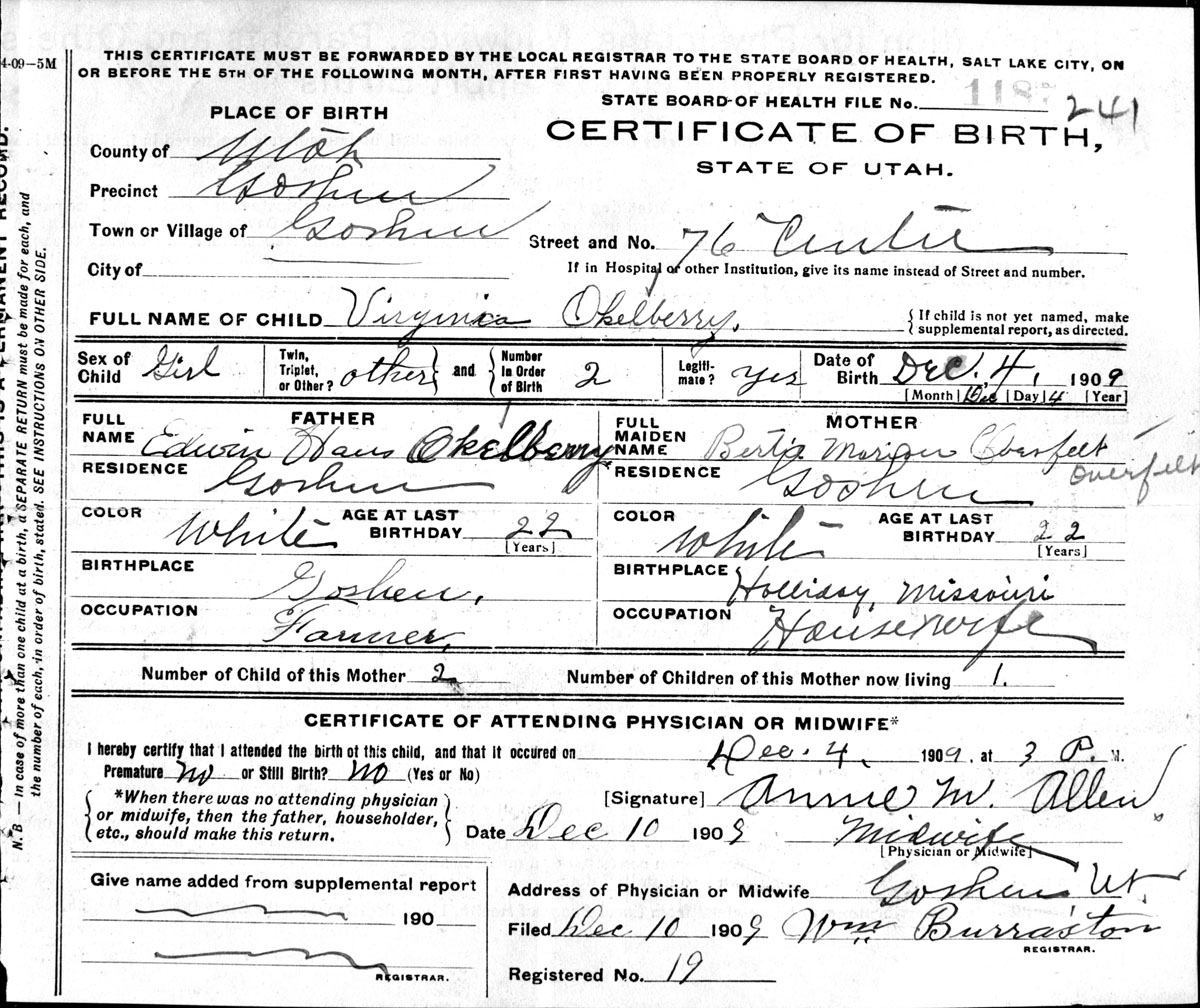 4-09—5M
THIS CERTIFICATE MUST BE FORWARDED BY THE LOCAL REGISTRAR TO THE STATE BOARD OF HEALTH, SALT LAKE CITY, ON
OR BEFORE THE 5TH OF THE FOLLOWING MONTH, AFTER FIRST HAVING BEEN PROPERLY REGISTERED.
STATE BOARD OF HEALTH FILE No. 241
PLACE OF BIRTH
CERTIFICATE OF BIRTH,
STATE OF UTAH.
County of Utah
Precinct Goshen
Town or Village of Goshen
Street and No. 76 Center
City of
If in Hospital or other Institution, give its name instead of Street and number.
FULL NAME OF CHILD Virginia Okelberry.
{ If child is not yet named, make
supplemental report, as directed.
Sex of Child Girl
Twin, Triplet, or Other? other } and { Number In Order of Birth 2
Legiti-mate? yes
Date of Birth Dec. 4, 1909
[Month] Dec [Day] 4 [Year]
FATHER
FULL NAME Edwin Hans Okelberry
RESIDENCE Goshen
COLOR White AGE AT LAST BIRTHDAY 22 [Years]
BIRTHPLACE Goshen.
OCCUPATION Farmer.
MOTHER
FULL MAIDEN NAME Berta Marion Overfelt
Overfelt
RESIDENCE Goshen
COLOR White AGE AT LAST BIRTHDAY 22 [Years]
BIRTHPLACE Holliday, Missouri
OCCUPATION Housewife
Number of Child of this Mother 2 Number of Children of this Mother now living 1.
CERTIFICATE OF ATTENDING PHYSICIAN OR MIDWIFE*
I hereby certify that I attended the birth of this child, and that it occured on Dec. 4, 1909. at 3 P. M.
Premature no or Still Birth? No (Yes or No)
{ *When there was no attending physician
or midwife, then the father, householder,
etc., should make this return. }
[Signature] Annie M. Allen
Date Dec 10 1909 Midwife
[Physician or Midwife]
Give name added from supplemental report
190
REGISTRAR.
Address of Physician or Midwife Goshen Ut.
Filed Dec 10 1909 Wm Burraston
REGISTRAR.
Registered No. 19
N. B.—In case of more than one child at a birth, a SEPARATE RETURN must be made for each, and
the number of each, in order of birth, stated. SEE INSTRUCTIONS ON OTHER SIDE.